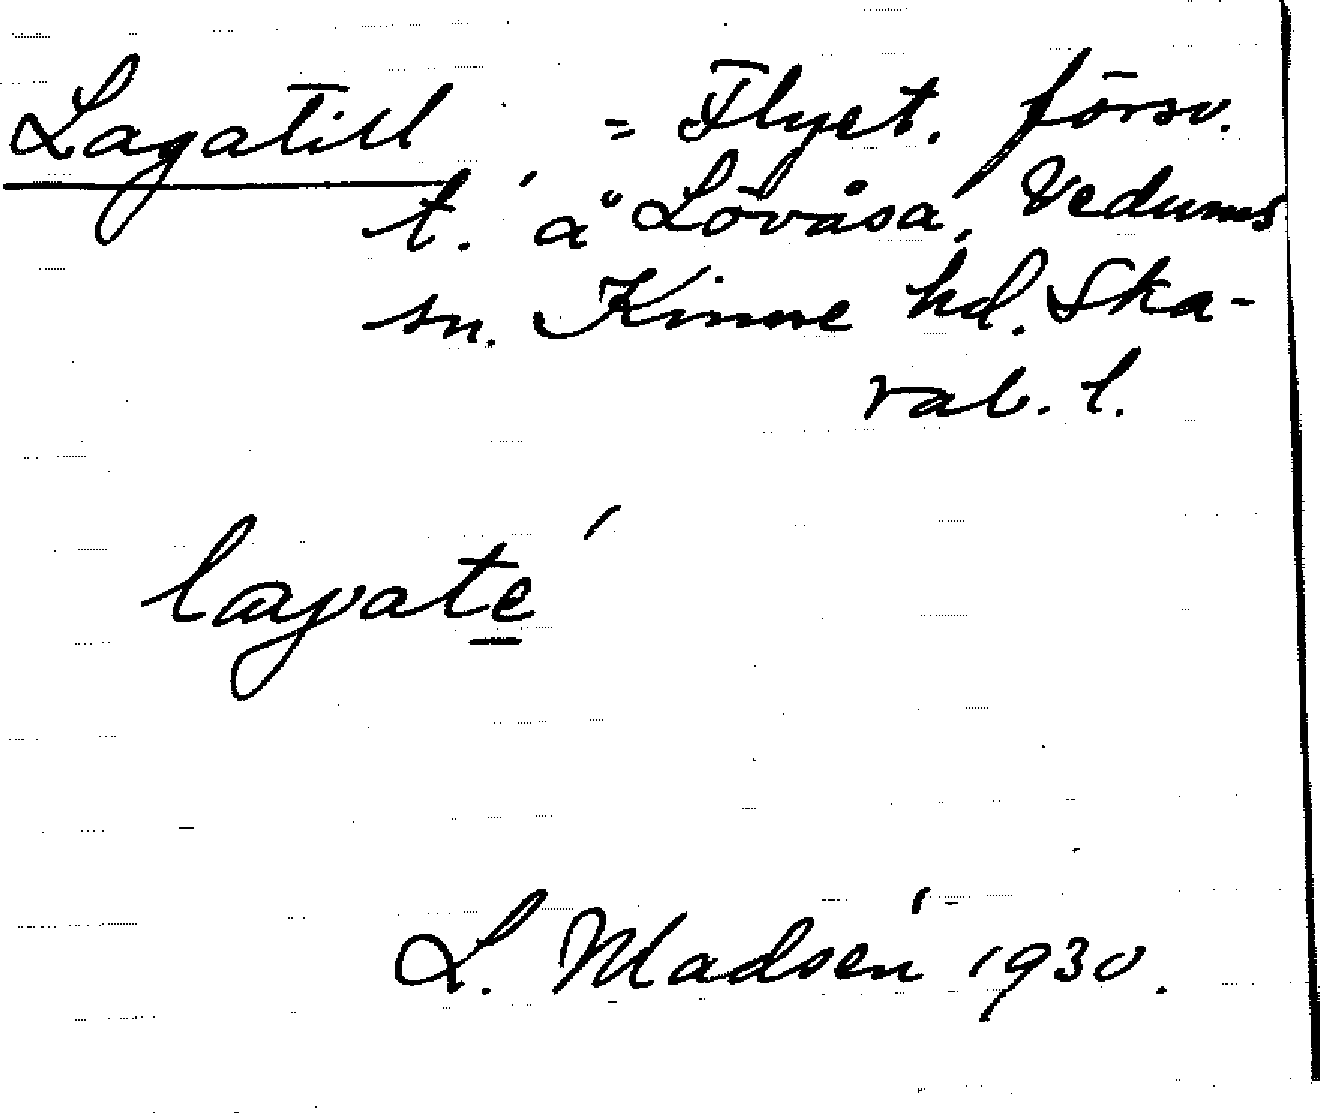 Lagatill = Flyet. försv.
t. å Lövåsa, Vedums
sn. Kinne hd. Ska-
rab. l.
lagate
L. Madsén 1930.